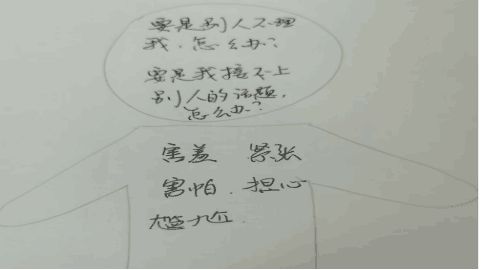 要是别人不理
我，怎么办？
要是我接不上
别人的话题，
怎么办？
害羞 紧张
害怕．担心
尴尬．